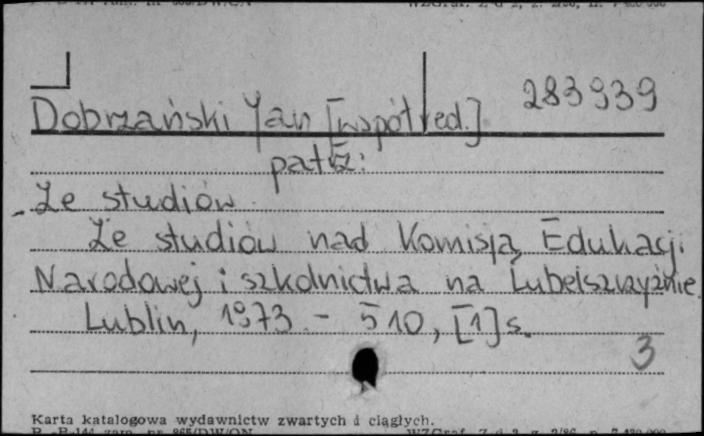 283939
Dobrzański Jan [współred.]
patrz:
Ze studiów
Ze studiów nad Komisją Edukacji
Narodowej i szkolnictwa na Lubelszczyźnie
Lublin, 1973 - 510, [1] s.
3
Karta katalogowa wydawnictw zwartych i ciągłych.